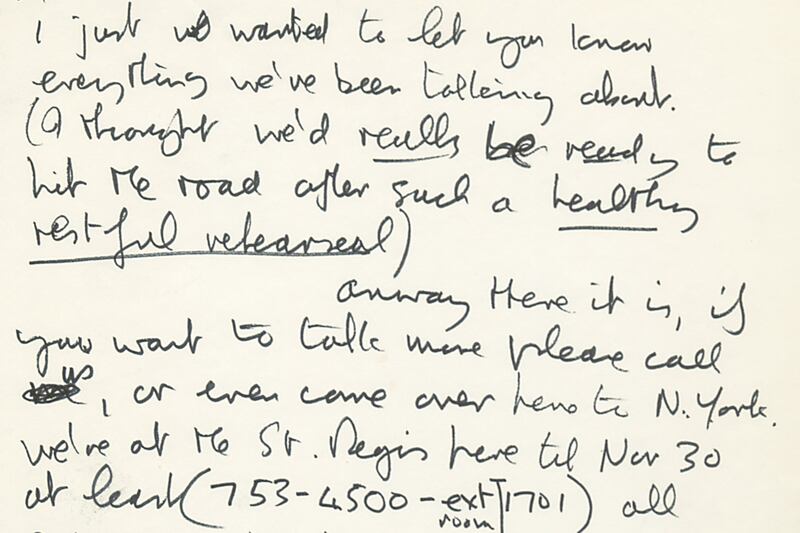 I just wanted to let you know
everything we've been talking about.
(I thought we'd really be ready to
hit the road after such a healthy
restful rehearseal)
anway there it is, if
you want to talk more please call
us, or even come over here to N. York.
we're at the St. Regis here til Nov 30
at least (753-4500-ext 1701) all
room